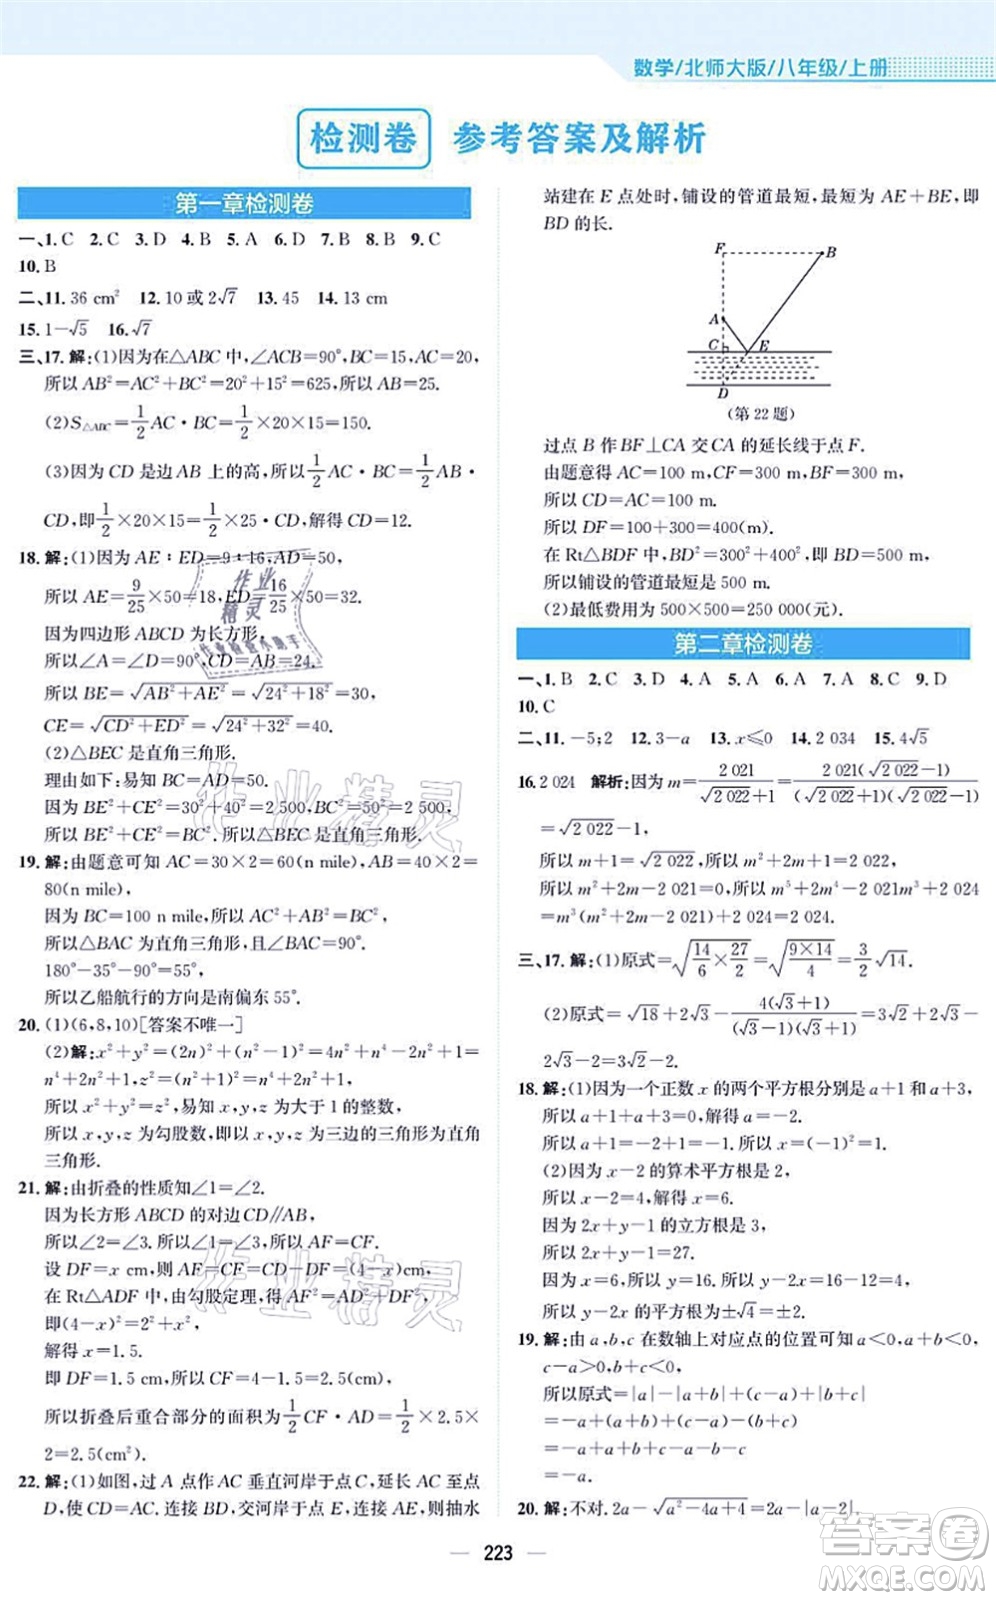 数学/北师大版/八年级/上册
检测卷 参考答案及解析
第一章检测卷
一、1. C 2. C 3. D 4. B 5. A 6. D 7. B 8. B 9. C
10. B
二、11. 36 cm² 12. 10 或 2√7 13. 45 14. 13 cm
15. 1－√5 16. √7
三、17. 解:(1)因为在△ABC 中,∠ACB=90°,BC=15,AC=20,
所以 AB²=AC²+BC²=20²+15²=625,所以 AB=25.
(2)S△ABC=1/2 AC·BC=1/2×20×15=150.
(3)因为 CD 是边 AB 上的高,所以 1/2 AC·BC=1/2 AB·
CD,即 1/2×20×15=1/2×25·CD,解得 CD=12.
18. 解:(1)因为 AE∶ED=9∶16,AD=50,
所以 AE=9/25×50=18,ED=16/25×50=32.
因为四边形 ABCD 为长方形,
所以∠A=∠D=90°,AB=CD=24.
所以 BE=√(AB²+AE²)=√(24²+18²)=30,
CE=√(CD²+ED²)=√(24²+32²)=40.
(2)△BEC 是直角三角形.
理由如下:易知 BC=AD=50.
因为 BE²+CE²=30²+40²=2 500,BC²=50²=2 500,
所以 BE²+CE²=BC². 所以△BEC 是直角三角形.
19. 解:由题意可知 AC=30×2=60(n mile),AB=40×2=
80(n mile).
因为 BC=100 n mile,所以 AC²+AB²=BC²,
所以△BAC 为直角三角形,且∠BAC=90°.
180°－35°－90°=55°,
所以乙船航行的方向是南偏东 55°.
20. (1)(6,8,10)[答案不唯一]
(2)解:x²+y²=(2n)²+(n²－1)²=4n²+n⁴－2n²+1=
n⁴+2n²+1=(n²+1)²=z²,
所以 x²+y²=z². 易知 x,y,z 为大于 1 的整数,
所以 x,y,z 为勾股数,即以 x,y,z 为三边的三角形为直角
三角形.
21. 解:由折叠的性质知∠1=∠2.
因为长方形 ABCD 的对边 CD∥AB,
所以∠2=∠3. 所以∠1=∠3. 所以 CF=AF.
设 DF=x cm,则 AE=CF=CD－DF=(4－x)cm.
在 Rt△ADF 中,由勾股定理,得 AF²=AD²+DF²,
即(4－x)²=2²+x²,
解得 x=1.5.
即 DF=1.5 cm,所以 CF=4－1.5=2.5(cm).
所以折叠后重合部分的面积为 1/2 CF·AD=1/2×2.5×
2=2.5(cm²).
22. 解:(1)如图,过 A 点作 AC 垂直河岸于点 C,延长 AC 至点
D,使 CD=AC. 连接 BD,交河岸于点 E,连接 AE,则抽水
站建在 E 点处时,铺设的管道最短,最短为 AE+BE,即
BD 的长.
F B
A
C E
D
(第 22 题)
过点 B 作 BF⊥CA 交 CA 的延长线于点 F.
由题意得 AC=100 m,CF=300 m,BF=300 m.
所以 CD=AC=100 m.
所以 DF=100+300=400(m).
在 Rt△BDF 中,BD²=300²+400²,即 BD=500 m,
所以铺设的管道最短是 500 m.
(2)最低费用为 500×500=250 000(元).
第二章检测卷
一、1. B 2. C 3. D 4. A 5. A 6. A 7. A 8. C 9. D
10. C
二、11. －5;2 12. 3－a 13. x≤0 14. 2 034 15. 4√5
16. 2 024 解析:因为 m=2 021/(√2 022+1)=2 021(√2 022－1)/((√2 022+1)(√2 022－1))
=√2 022－1,
所以 m+1=√2 022,所以 m²+2m+1=2 022,
所以 m²+2m－2 021=0,所以 m⁵+2m⁴－2 021m³+2 024
=m³(m²+2m－2 021)+2 024=2 024.
三、17. 解:(1)原式=√(14/6×27/2)=√(9×14/4)=3/2 √14.
(2)原式=√18+2√3－4(√3+1)/((√3－1)(√3+1))=3√2+
2√3－2√3－2=3√2－2.
18. 解:(1)因为一个正数 x 的两个平方根分别是 a+1 和 a+3,
所以 a+1+a+3=0,解得 a=－2.
所以 a+1=－2+1=－1. 所以 x=(－1)²=1.
(2)因为 x－2 的算术平方根是 2,
所以 x－2=4,解得 x=6.
因为 2x+y－1 的立方根是 3,
所以 2x+y－1=27.
所以 y=16. 所以 y－2x=16－12=4,
所以 y－2x 的平方根为±√4=±2.
19. 解:由 a,b,c 在数轴上对应点的位置可知 a<0,a+b<0,
c－a>0,b+c<0,
所以原式=|a|－|a+b|+|c－a|+|b+c|
=－a+a+b+c－a－b－c
=－a.
20. 解:不对. 2a－√(a²－4a+4)=2a－|a－2|.
223
作业精灵
作业精灵
作业精灵
答案卷